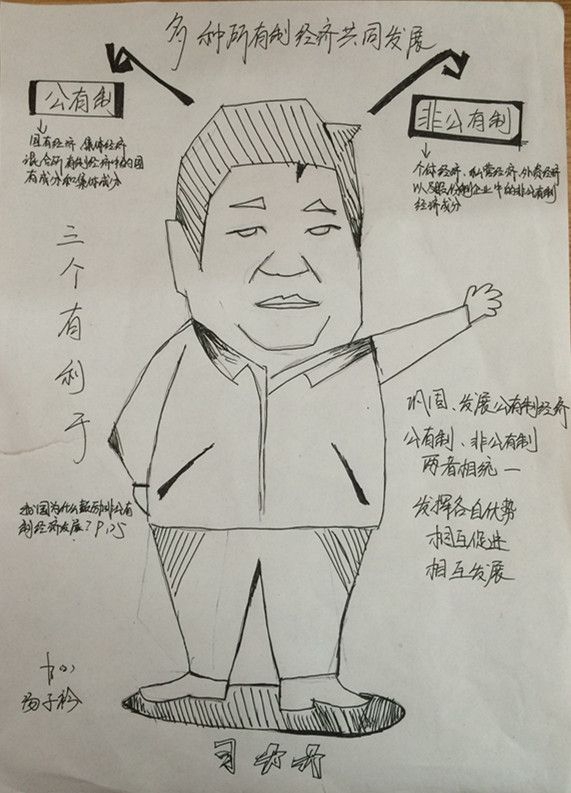 多种所有制经济共同发展
公有制
国有经济、集体经济
混合所有制经济中的国
有成分和集体成分
非公有制
个体经济、私营经济、外资经济
以及股份制企业中的非公有制
经济成分
三个有利于
巩固、发展公有制经济
公有制、非公有制
两者相统一
发挥各自优势
相互促进
相互发展
我国为什么鼓励非公有
制经济发展？P.25